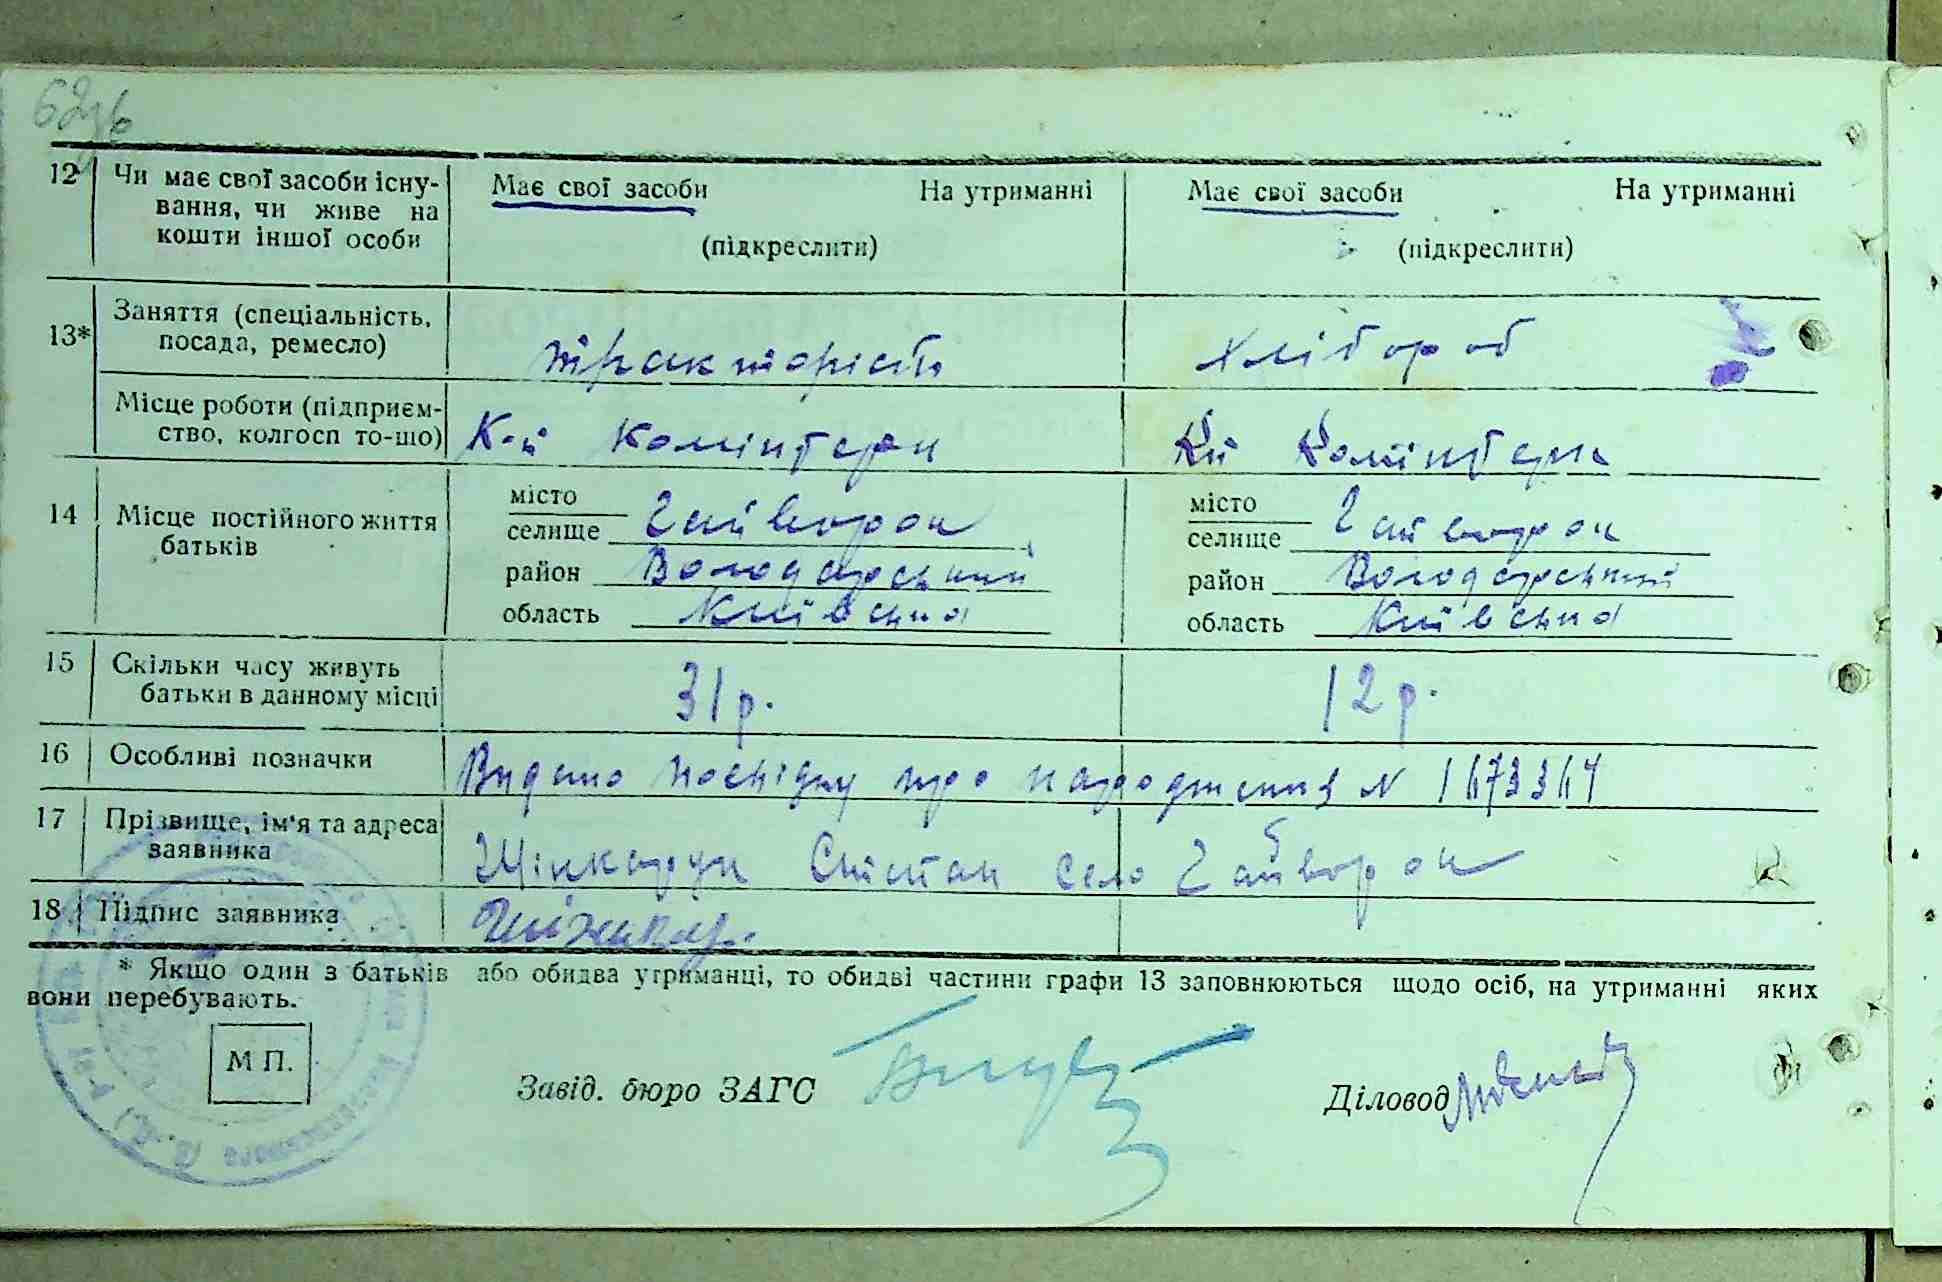 62зв
12 Чи має свої засоби існу- Має свої засоби На утриманні Має свої засоби На утриманні
вання, чи живе на
кошти іншої особи (підкреслити) (підкреслити)
13* Заняття (спеціальність, посада, ремесло) тракторіст хлібороб
Місце роботи (підприєм-
ство, колгосп то-що) К-п Комінтерн К-п Комінтерн
14 Місце постійного життя батьків
місто селище Гайворон місто селище Гайворон
район Володарський район Володарський
область Київська область Київська
15 Скільки часу живуть
батьки в данному місці 31 р. 12 р.
16 Особливі позначки Видано посвідку про народження № 1673364
17 Прізвище, ім'я та адреса
заявника Степан село Гайворон
18 Підпис заявника
* Якщо один з батьків або обидва утриманці, то обидві частини графи 13 заповнюються щодо осіб, на утриманні яких
вони перебувають.
М П.
Завід. бюро ЗАГС Діловод